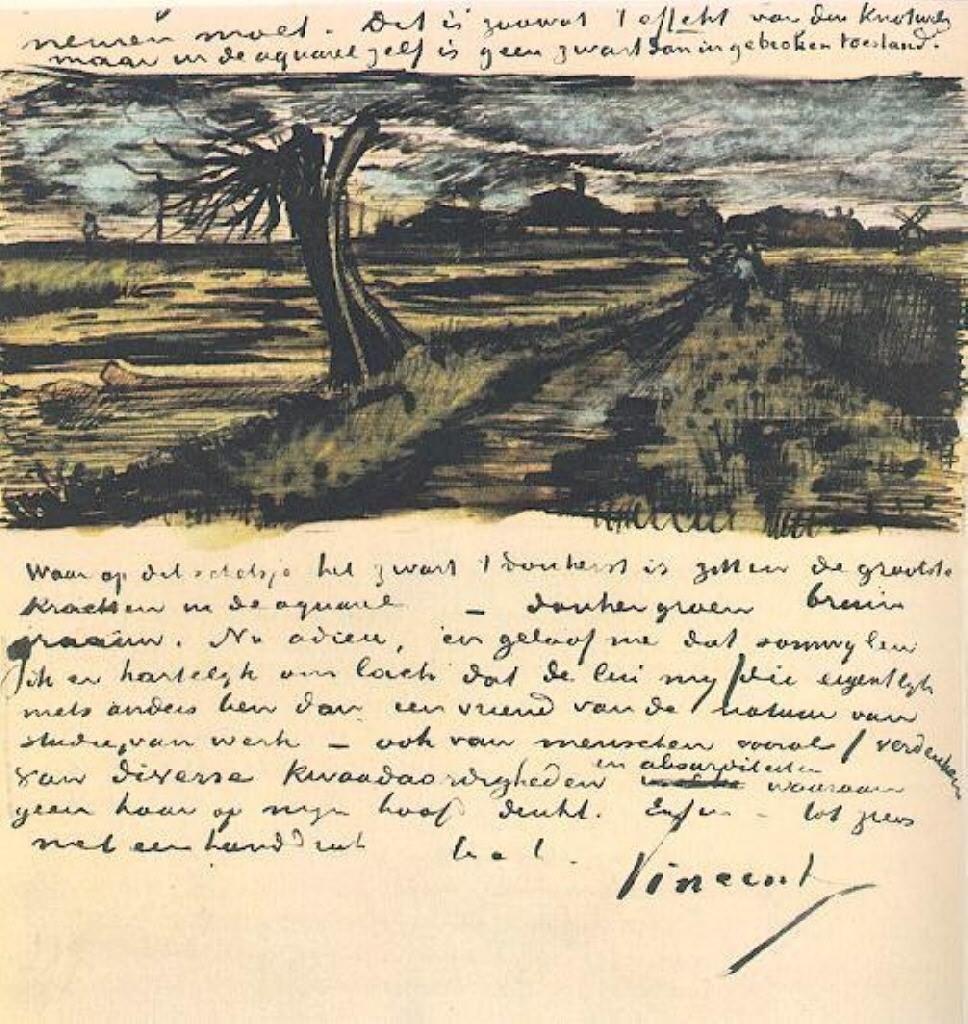 nemen moet. Dit is zoowat 't effekt van den Knotwilg
maar in de aquarel zelf is geen zwart dan in gebroken toestand.
Waar op dit schetsje het zwart 't donkerst is zitten de grootste
krachten in de aquarel – donkergroen bruin
graauw. Nu adieu, en geloof me dat somwylen
ik er hartelyk om lach dat de lui my / die eigentlyk
niets anders ben dan een vriend van de natuur van
studie, van werk – ook van menschen vooral / verdenken
van diverse kwaadaardigheden en absurditeiten waaraan
geen haar op myn hoofd denkt. Enfin – tot ziens
met een handdruk t. à t.
Vincent